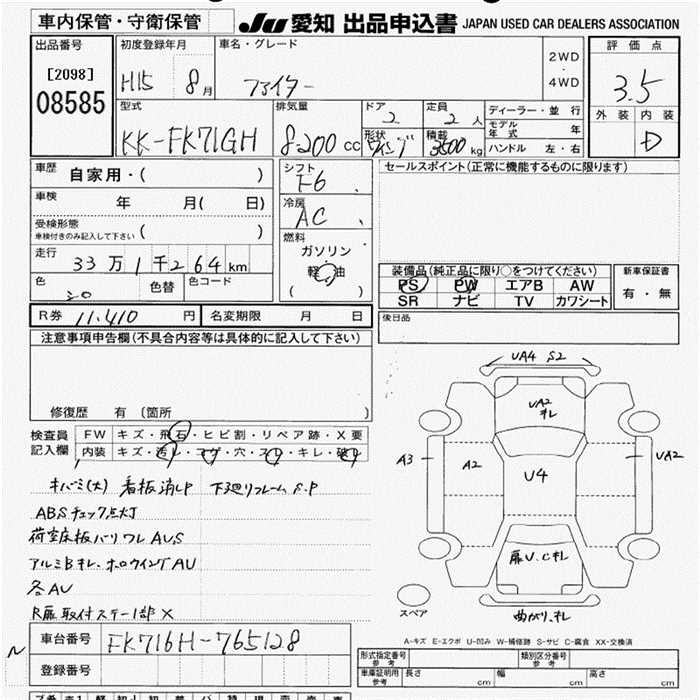 車内保管・守衛保管
JU 愛知 出品申込書 JAPAN USED CAR DEALERS ASSOCIATION
出品番号
[2098]
08585
初度登録年月
H15 8月
車名・グレード
ファイター
2WD
・
4WD
評価点
3.5
外装 内装
D
型式
KK-FK71GH
排気量
8200 cc
ドア
2
定員
2人
形状
ウィング
積載
3500kg
ディーラー・並行
モデル年式 年
ハンドル 左・右
車歴
自家用・( )
車検
年 月( 日)
受検形態
車検付きのみ記入して下さい ( )
走行
33万1千264km
色
シロ
色替
色コード
シフト
F6
冷房
AC
燃料
ガソリン
・
軽油
( )
セールスポイント(正常に機能するものに限ります)
装備品(純正品に限り○をつけてください)
PS PW エアB AW
SR ナビ TV カワシート
新車保証書
有・無
後日品
R券 11,410 円 名変期限 月 日
注意事項申告欄(不具合内容等は具体的に記入して下さい)
修復歴 有 (箇所 )
検査員
記入欄
FW キズ・飛石・ヒビ割・リペア跡・X要
内装 キズ・汚レ・コゲ・穴・スレ・キレ・破レ
キバミ(大) 看板消しP 下廻りフレームS.P
ABSチェック点灯
荷室床板バリワレAUS
アルミBキレ.ホロウイングAU
各AU
R扉取付ステー1部X
車台番号 FK716H-765128
登録番号
UA4 S2
UA2
キレ
A3
A2
U4
UA2
扉U.Cキレ
曲がり.キレ
スペア
A-キズ E-エクボ U-凹み W-補修跡 S-サビ C-腐食 XX-交換済
形式指定番号
参考
類別区分番号
参考
車庫証明用
参考
長さ cm 幅 cm 高さ cm